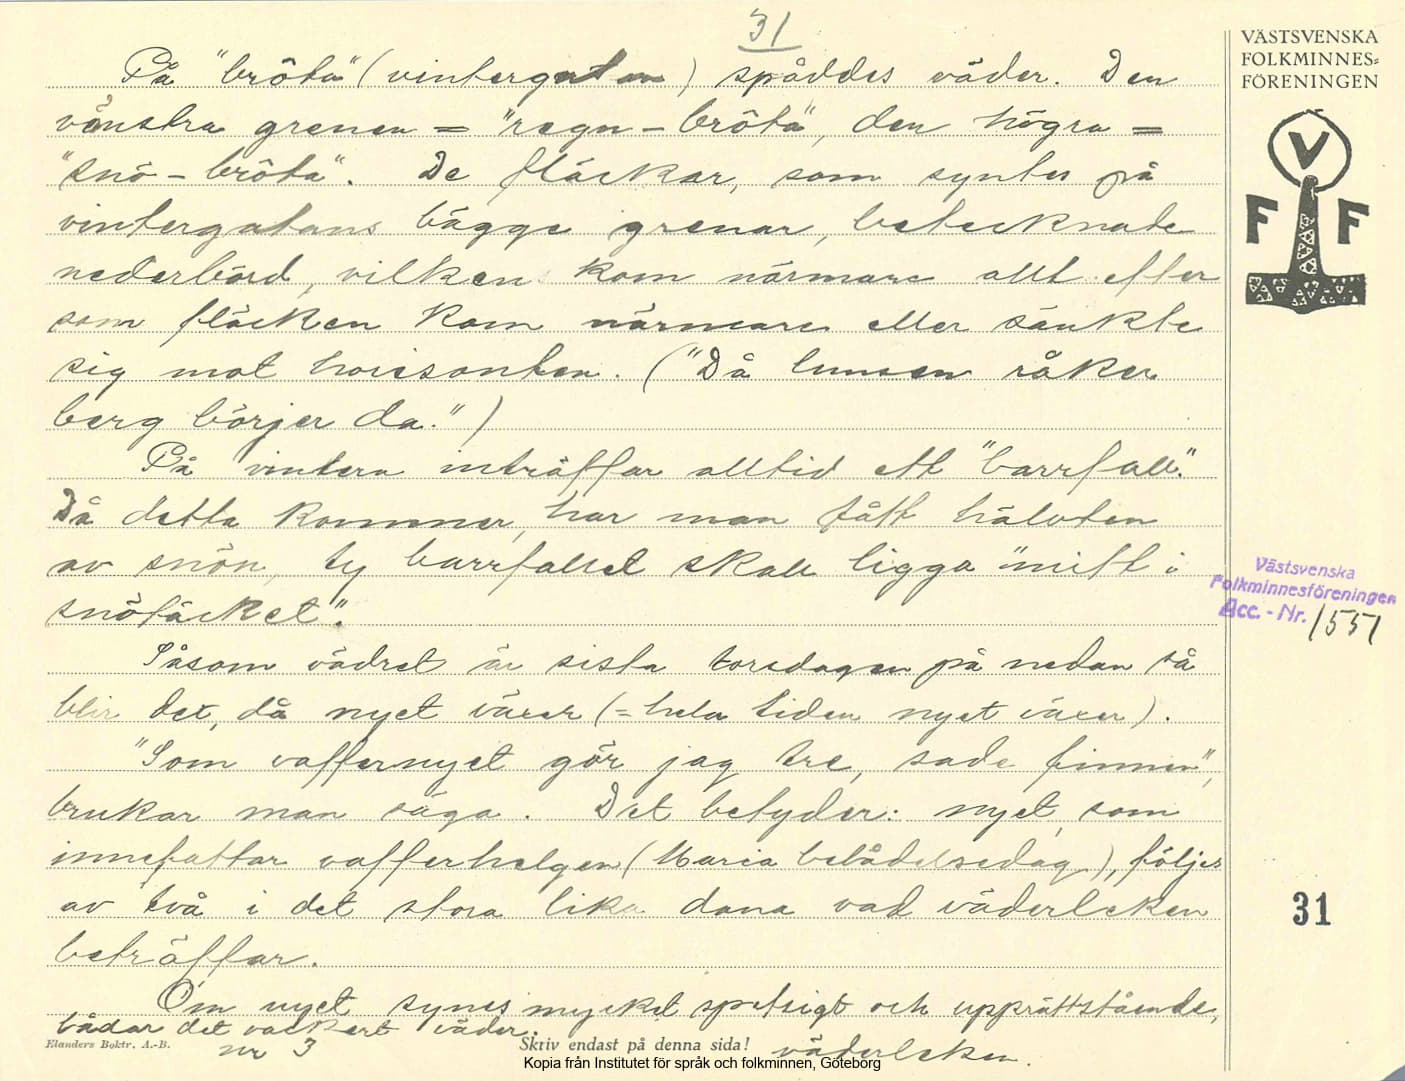 31
På "bröta" (vintergatan) spåddes väder. Den
vänstra grenen = "regn-bröta", den högra =
"snö-bröta". De fläckar, som syntes på
vintergatans bägge grenar, betecknade
nederbörd, vilken kom närmare allt efter
som fläcken kom närmare eller sänkte
sig mot horisonten. ("Då lunsen råker
berg börjer da.")
På vintern inträffar alltid ett "barrfall".
Då detta kommer, har man fått hälvten
av snön, ty barrfallet skall ligga "mitt i
snötäcket".
Såsom vädret är sista torsdagen på nedan så
blir det, då nyet växer (= hela tiden nyet växer).
"Som vaffernyet gör jag tre, sade finnen",
brukar man säga. Det betyder: nyet, som
innefattar vafferhelgen (Maria bebådelsedag), följes
av två i det stora lika dana vad väderleken
beträffar.
Om nyet synes mycket spetsigt och upprättstående,
bådar det vackert väder.
nr 3 väderleken.
Elanders Boktr. A.-B.
Skriv endast på denna sida!
Kopia från Institutet för språk och folkminnen, Göteborg
VÄSTSVENSKA
FOLKMINNES=
FÖRENINGEN
V
F F
Västsvenska
Folkminnesföreningen
Acc. - Nr. 1551
31